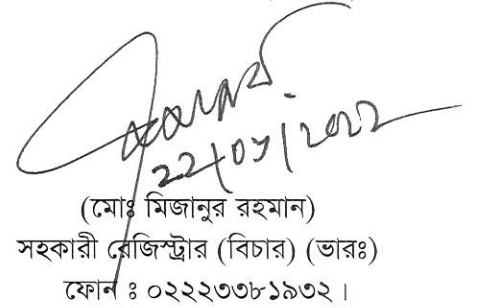 22/05/2022
(মোঃ মিজানুর রহমান)
সহকারী রেজিস্ট্রার (বিচার) (ভারঃ)
ফোন ঃ ০২২২৩৩৮১৯৩২।